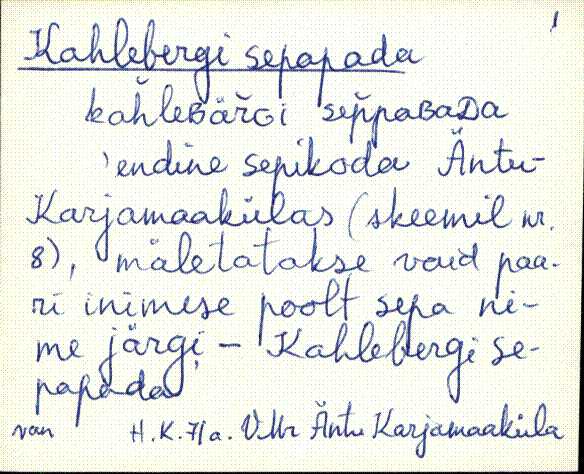 Kahlebergi sepapada
kahleBäřGi sep̆paBaDa
'endine sepikoda Äntu-
Karjamaakülas (skeemil nr.
8), mäletatakse vaid paa-
ri inimese poolt sepa ni-
me järgi – Kahlebergi se-
papada'
van H.K. 71a. VMr Äntu Karjamaaküla